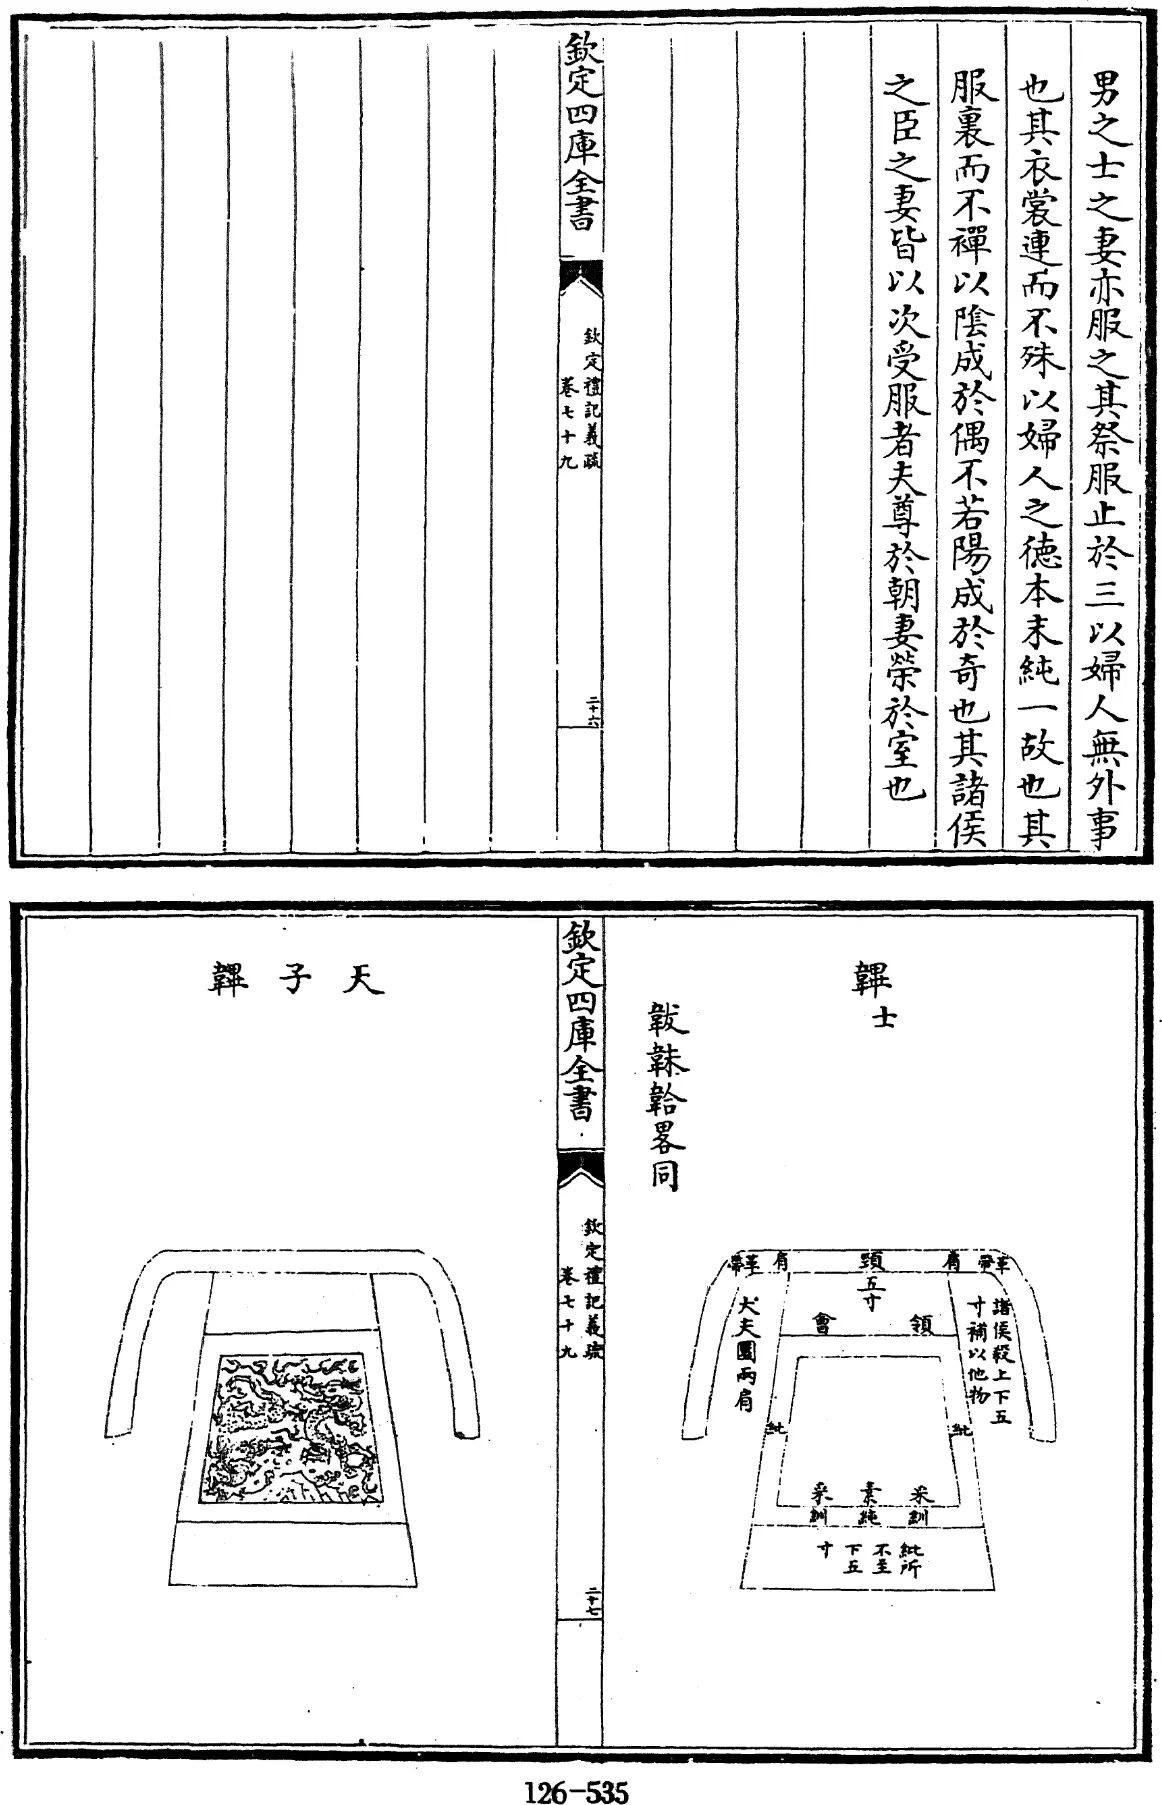 男之士之妻亦服之其祭服止於三以婦人無外事
也其衣裳連而不殊以婦人之德本末純一故也其
服裏而不襌以陰成於偶不若陽成於奇也其諸侯
之臣之妻皆以次受服者夫尊於朝妻榮於室也
欽定四庫全書
欽定禮記義疏
卷七十九
二十六
韠
士
韍韎韐畧同
革帶
肩
頸五寸
肩
革帶
諸侯殺上下五
寸補以他物
領
會
大夫圜兩肩
紕
紕
采
素
采
紃
純
紃
紕所
不至
下五
寸
欽定四庫全書
欽定禮記義疏
卷七十九
二十七
天子韠
126-535